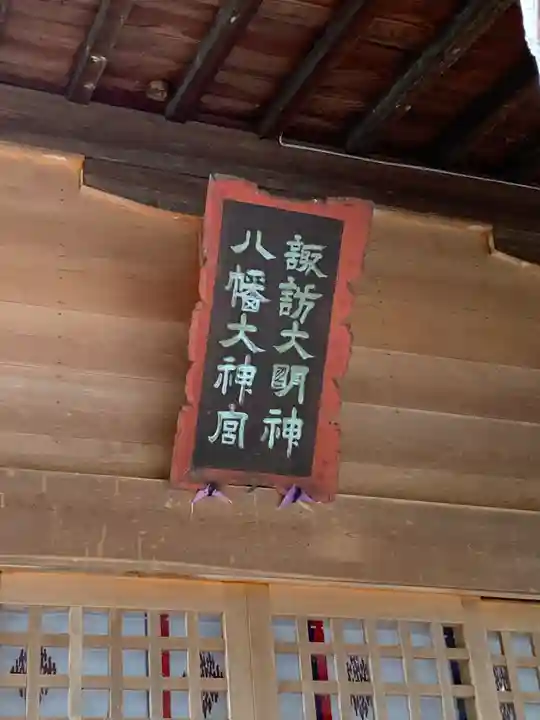 諏訪大明神
八幡大神宮